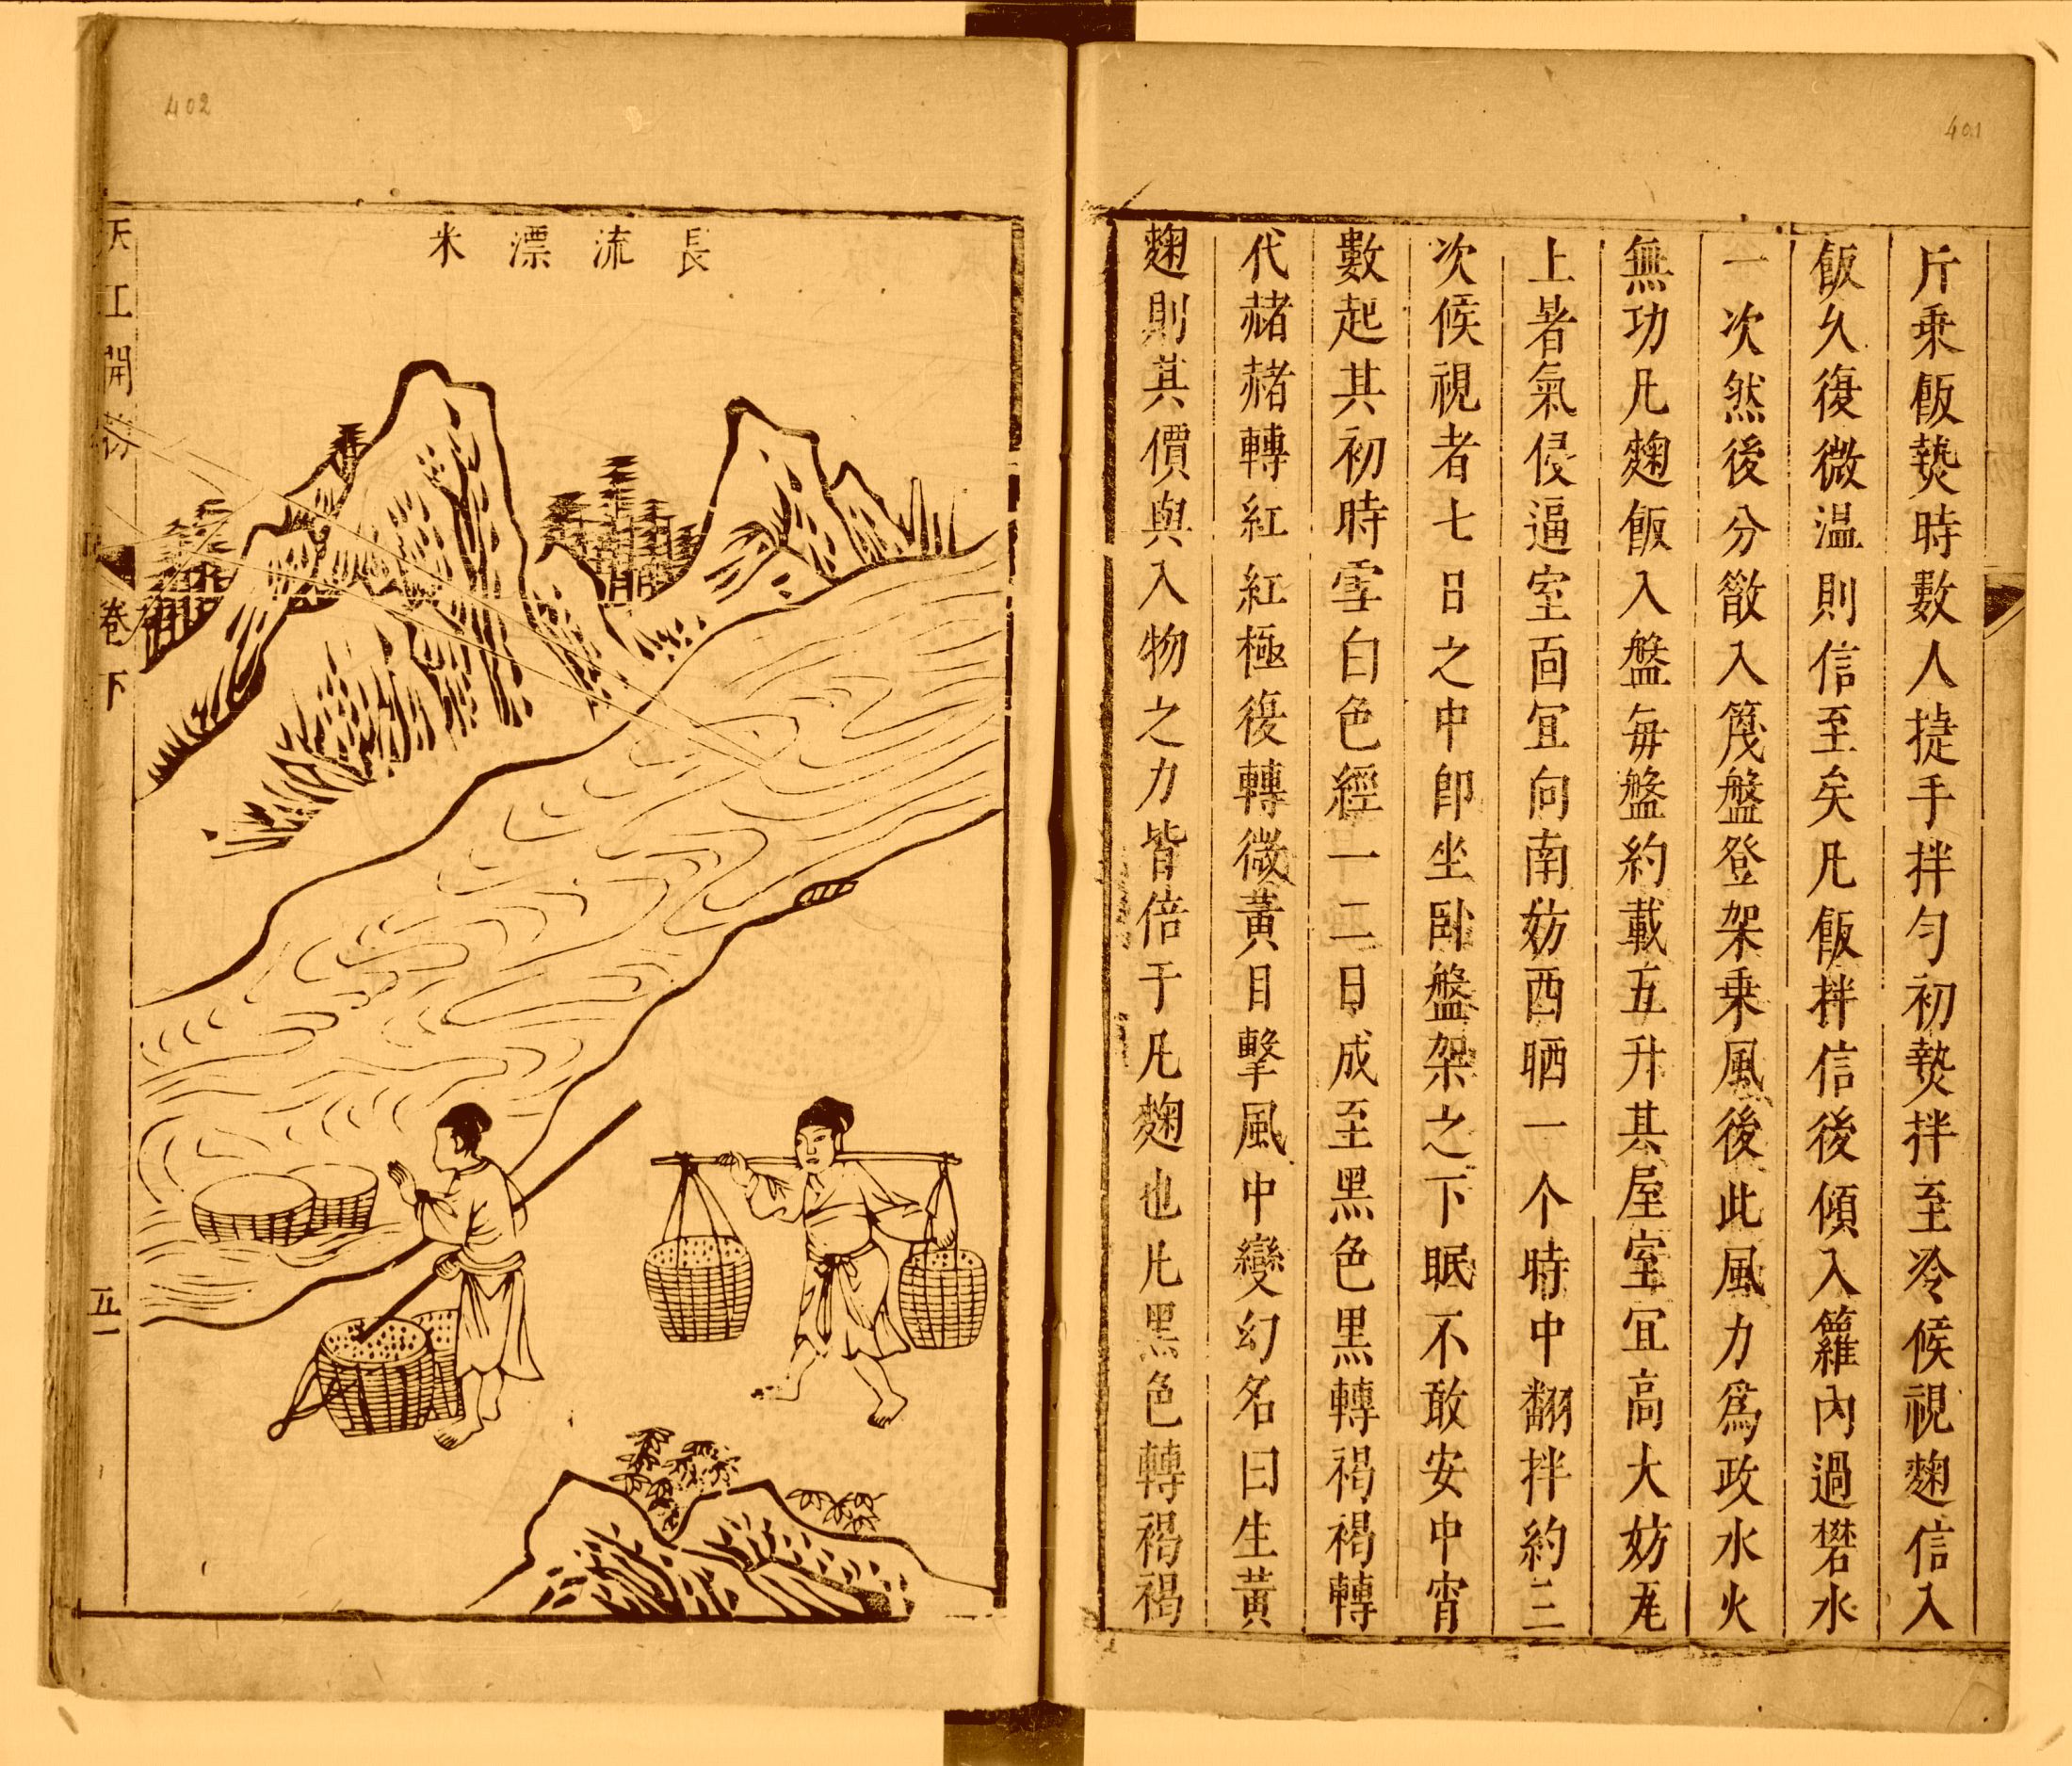 401
斤乗飯𤍠時數人㨗手拌匀初𤍠拌至冷候視麴信入
飯久復微温則信至矣凡飯拌信後傾入籮内過礬水
一次然後分散入篾盤登架乗風後此風力爲政水火
無功凡麴飯入盤每盤約載五升其屋室宜高大妨瓦
上暑氣侵逼室面宜向南妨西晒一个時中翻拌約三
次候視者七日之中即坐臥盤架之下眠不敢安中宵
數起其初時雪白色經一二日成至黑色黒轉褐褐轉
代赭赭轉紅紅極復轉微黃目擊風中變幻名曰生黃
麴則其價與入物之力皆倍于凡麴也凡黑色轉褐褐
402
長流漂米
天工開物
卷下
五一